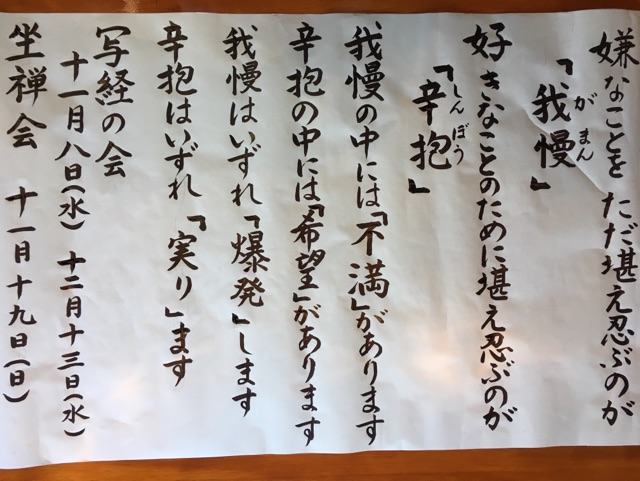 嫌なことを ただ堪え忍ぶのが
「我慢」
がまん
好きなことのために堪え忍ぶのが
「辛抱」
しんぼう
我慢の中には「不満」があります
辛抱の中には「希望」があります
我慢はいずれ「爆発」します
辛抱はいずれ「実り」ます
写経の会
十一月八日(水) 十二月十三日(水)
坐禅会 十一月十九日(日)